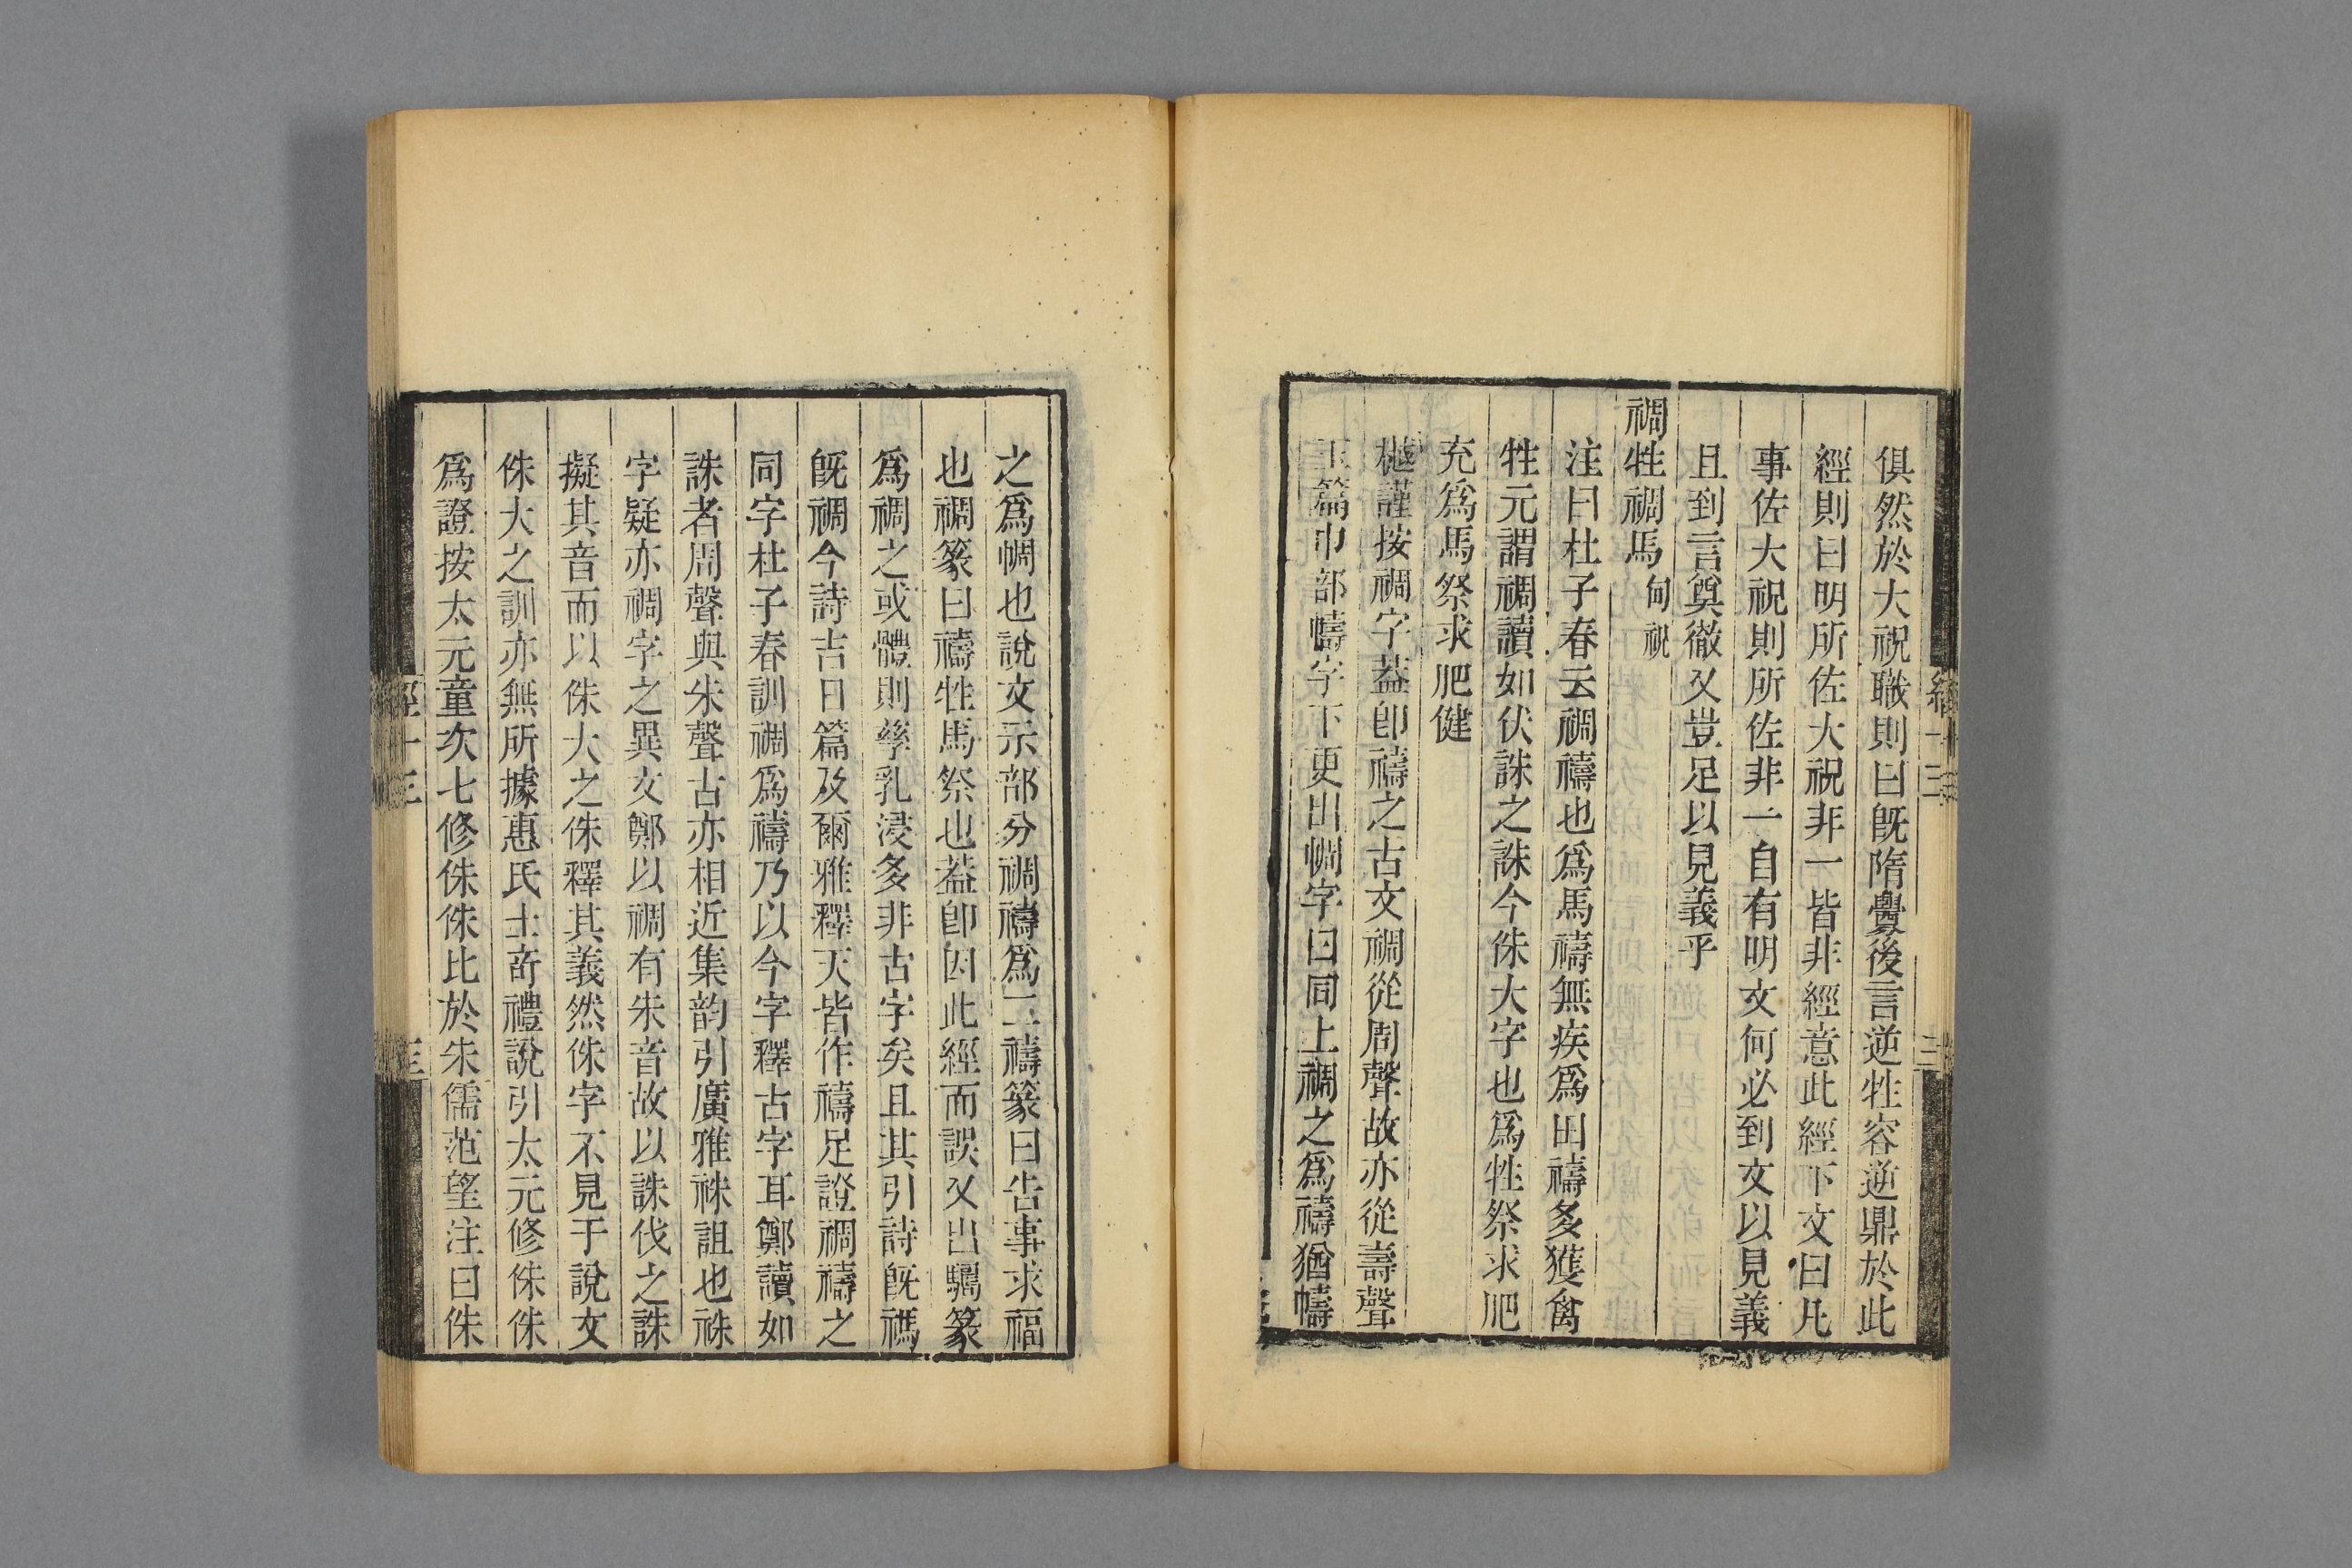 俱然於大祝職則曰旣隋釁後言逆牲容逆鼎於此
經則曰明所佐大祝非一皆非經意此經下文曰凡
事佐大祝則所佐非一自有明文何必到文以見義
且到言奠徹又豈足以見義乎
禂牲禂馬 甸祝
注曰杜子春云禂禱也爲馬禱無疾爲田禱多獲禽
牲元謂禂讀如伏誅之誅今侏大字也爲牲祭求肥
充爲馬祭求肥健
樾謹按禂字葢卽禱之古文禂從周聲故亦從壽聲
玉篇巾部幬字下更出㡏字曰同上禂之爲禱猶幬
之爲㡏也說文示部分禂禱爲二禱篆曰告事求福
也禂篆曰禱牲馬祭也葢卽因此經而誤又出驨篆
爲禂之或體則孳乳浸多非古字矣且其引詩旣禡
旣禂今詩吉日篇及爾雅釋天皆作禱足證禂禱之
同字杜子春訓禂爲禱乃以今字釋古字耳鄭讀如
誅者周聲與朱聲古亦相近集韵引廣雅祩詛也祩
字疑亦禂字之異文鄭以禂有朱音故以誅伐之誅
擬其音而以侏大之侏釋其義然侏字不見于說文
侏大之訓亦無所據惠氏士奇禮說引太元修侏侏
爲證按太元童次七修侏侏比於朱儒范望注曰侏
經十三
三